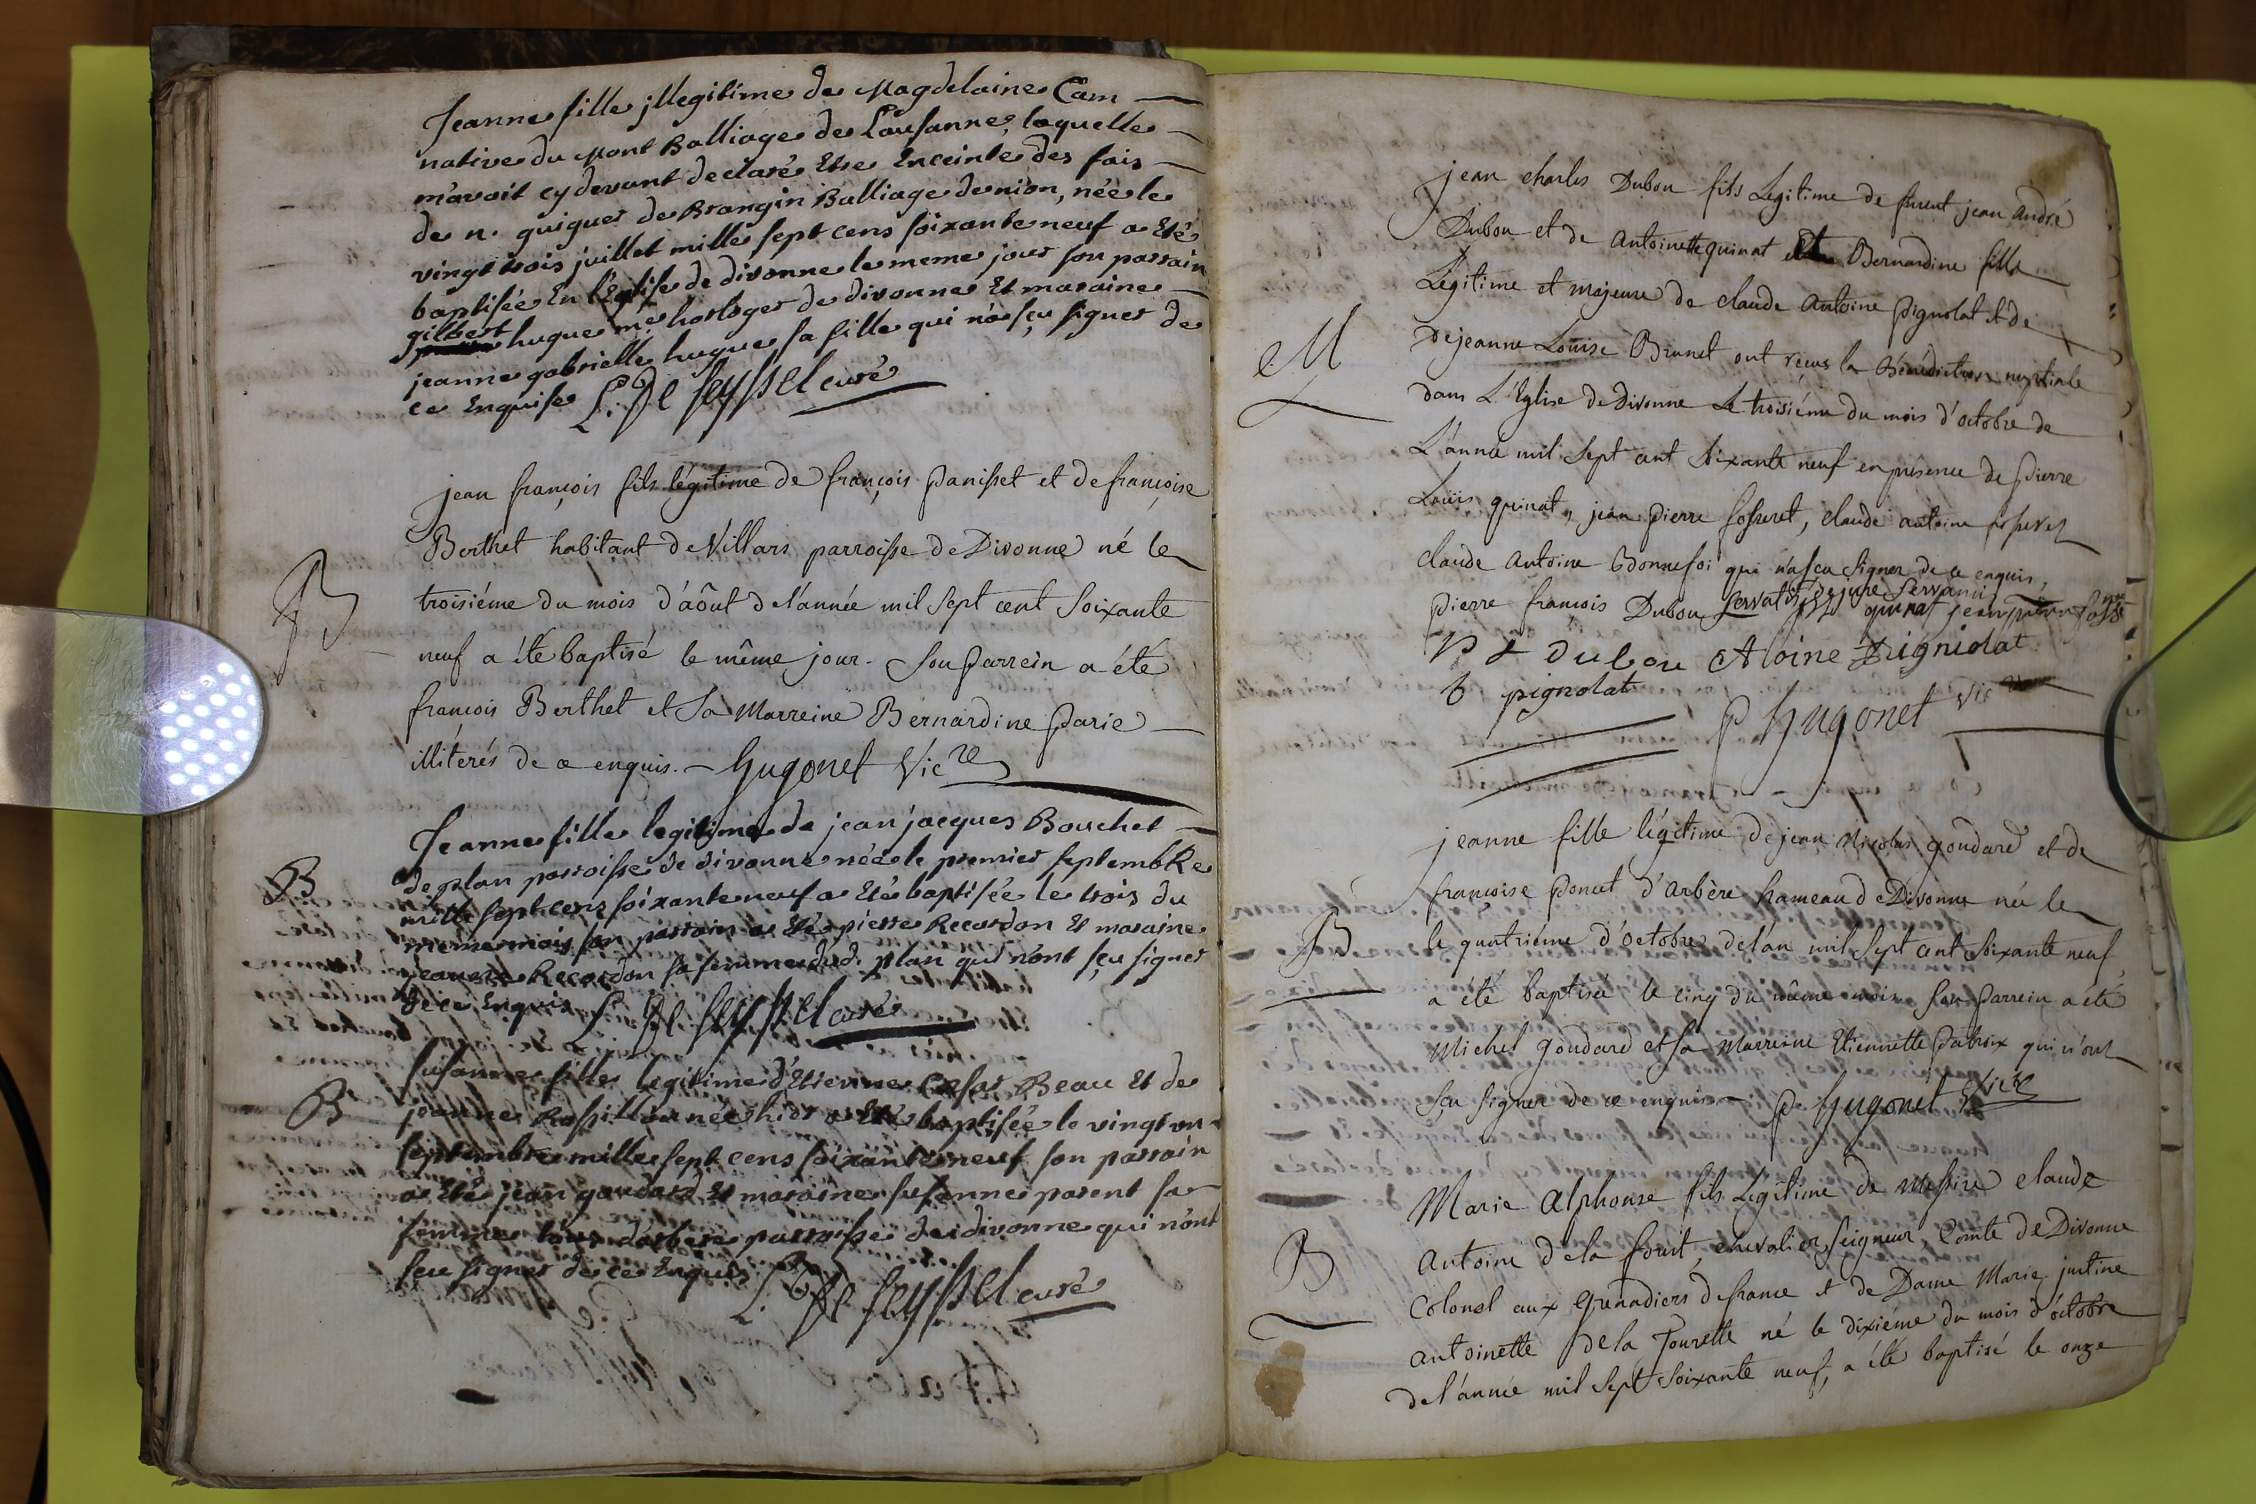 Jeanne fille jllegitime de Magdelaine Cam
native du Mont Balliage de Lausanne, laquelle
m'avoit cy devant declaré Etre Enceinte des fais
de n. guiguer de Brangin Balliage de nion, née le
vingt trois juillet mille sept cens soixante neuf a Eté
baptisée En l'Eglise de divonne le meme jour son parrain
gilbert hugue me horloger de divonne Et maraine
jeanne gabrielle hugue sa fille qui n'a sçu signer de
ce Enquise L. De Seyssel curé
jean françois fils légitime de françois Panisset et de françoise
Berthet habitant de Villars parroisse de Divonne né le
B
troisiéme du mois d'aôut de l'année mil sept cent soixante
neuf a été baptisé le même jour. Son Parrein a été
françois Berthet et Sa Marreine Bernardine Parie
illitérés de ce enquis. Hugonet Vicre
Jeanne fille legitime de jean jacques Bouchet
B
de plan parroisse de divonne née le premier septembRe
mille sept cens soixante neuf a Eté baptisée le trois du
meme mois son parrain a Eté pierre Recordon Et maraine
Recordon sa femme dud. plan qui n'ont sçu signer
de ce Enquis L. De Seyssel curé
susanne fille legitime d'Etienne Cesar Beau Et de
B
jeanne née hier a Eté baptisée le vingt un
septembre mille sept cens soixante neuf son parrain
a Eté jean goudard Et maraine susanne parent sa
femme tous d'arbere parroisse de divonne qui n'ont
sçu signer de ce Enquis L. De Seyssel curé
jean charles Dubou fils Legitime de furent jean André
Dubou et de Antoinette quinat et Bernardine fille
Légitime et majeure de claude Antoine Pignolat et de
M
de jeanne Louise Brunet ont reçus la Bénédiction nuptiale
dans L'Eglise de Divonne Le troisiéme du mois d'octobre de
L'année mil sept cent soixante neuf en présence de Pierre
Louis quinat, jean Pierre fosseret, claude antoine
claude Antoine Bonnefoi qui n'a sçu Signer de ce enquis,
pierre françois Dubou Servatis de jure Servandis
quinat jean pierre
P f Dubou Pigniolat
B pignolat
P Hugonet Vicre
jeanne fille légitime de jean Nicolas goudard et de
françoise Poncet d'Arbère hameau de Divonne née le
B
le quatriéme d'octobre de l'an mil sept cent soixante neuf
a été baptisée le cinq du même mois. Son Parrein a été
Michel goudard et Sa Marreine Etiennette Patroix qui n'ont
Sçu Signer de ce enquis P. Hugonet Vicre
Marie Alphonse fils Legitime de Messire claude
B
Antoine de la forest, chevalier, Seigneur, Comte de Divonne
Colonel aux Grenadiers de france et de Dame Marie justine
Antoinette De la Tourette né le dixiéme du mois d'octobre
de l'année mil Sept Soixante neuf, a été baptisé le onze